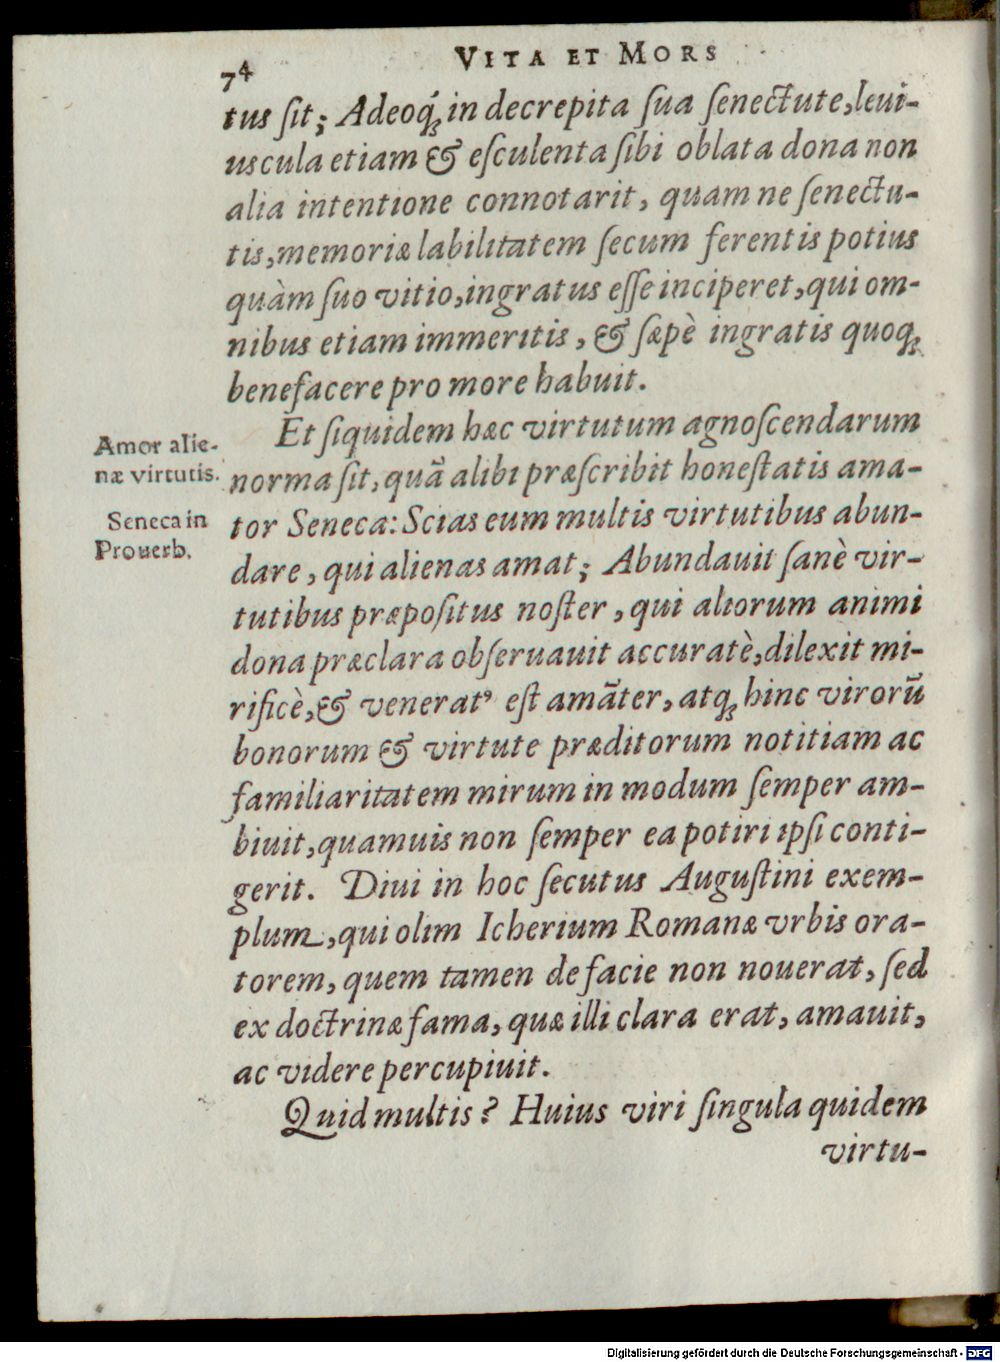 74
VITA ET MORS
tus ſit; Adeoq́ꝫ in decrepita ſua ſenectute, leui-
uscula etiam & eſculenta ſibi oblata dona non
alia intentione connotarit, quam ne ſenectu-
tis, memoriæ labilitatem ſecum ferentis potius
quàm ſuo vitio, ingratus eſſe inciperet, qui om-
nibus etiam immeritis, & ſæpè ingratis quoqꝫ
benefacere pro more habuit.
Amor alie-
næ virtutis.
Seneca in
Prouerb.
Et ſiquidem hæc virtutum agnoſcendarum
norma ſit, quã alibi præſcribit honeſtatis ama-
tor Seneca: Scias eum multis virtutibus abun-
dare, qui alienas amat; Abundauit ſanè vir-
tutibus præpoſitus noſter, qui aliorum animi
dona præclara obſeruauit accuratè, dilexit mi-
rificè, & veneratꝰ eſt amãter, atqꝫ hinc virorũ
bonorum & virtute præditorum notitiam ac
familiaritatem mirum in modum ſemper am-
biuit, quamuis non ſemper ea potiri ipſi conti-
gerit. Diui in hoc ſecutus Auguſtini exem-
plum, qui olim Icherium Romanæ vrbis ora-
torem, quem tamen de facie non nouerat, ſed
ex doctrinæ fama, quæ illi clara erat, amauit,
ac videre percupiuit.
Quid multis? Huius viri ſingula quidem
virtu-
Digitalisierung gefördert durch die Deutsche Forschungsgemeinschaft - DFG